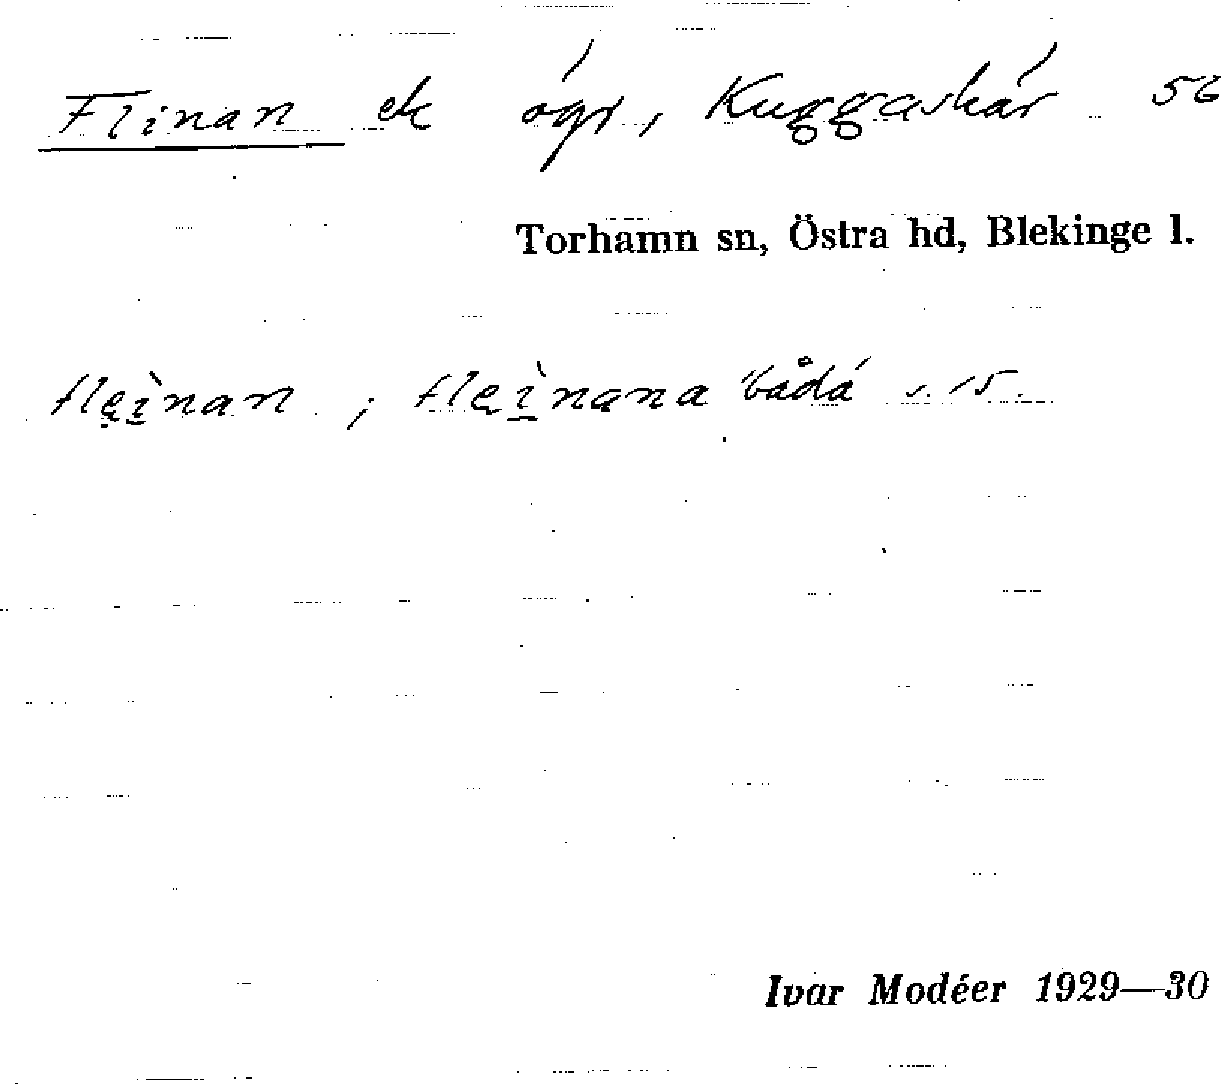 Flinan ek ögr, Kuggaskär 56
Torhamn sn, Östra hd, Blekinge l.
flęìnan ; flęìnana båda s. 15.
Ivar Modéer 1929—30